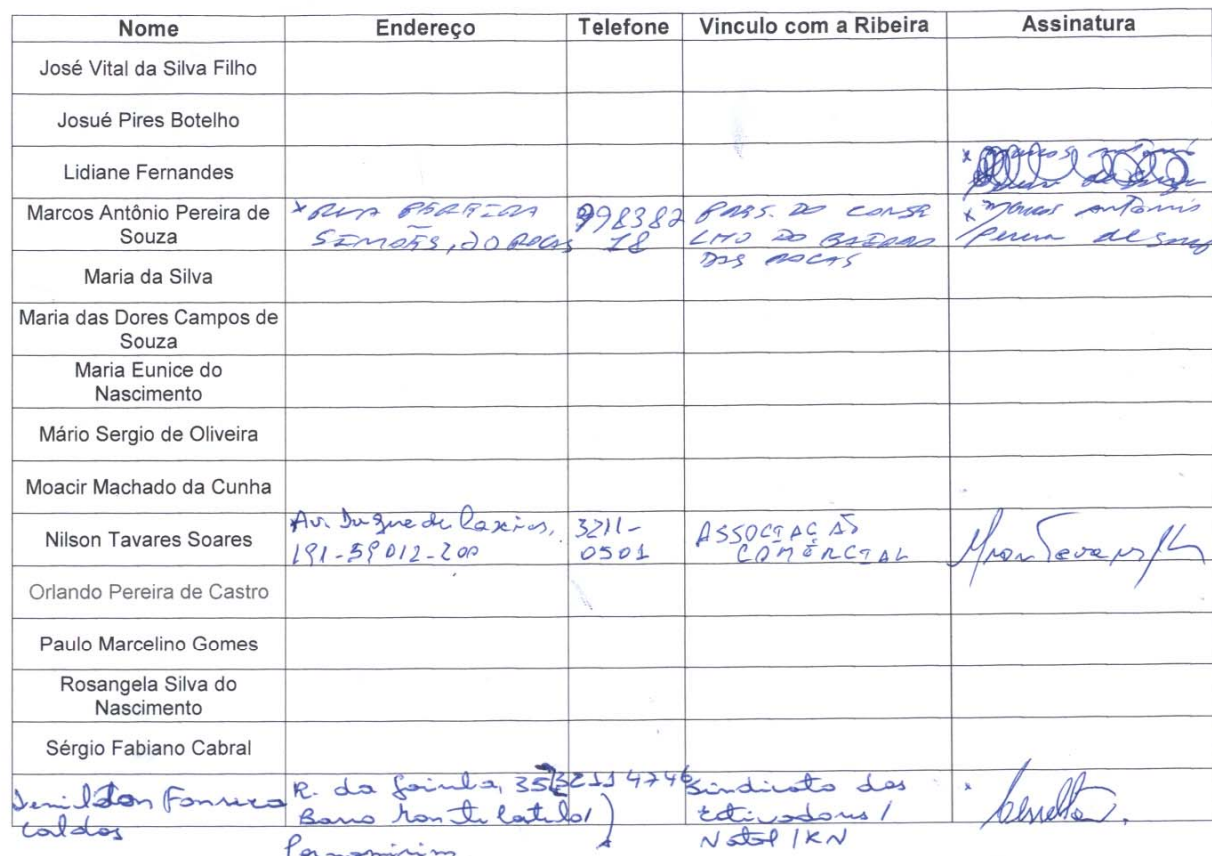 Nome Endereço Telefone Vinculo com a Ribeira Assinatura
José Vital da Silva Filho
Josué Pires Botelho
Lidiane Fernandes
Marcos Antônio Pereira de
Souza
× RUA
SIMÕES, 20 ROCAS
998382
18
PRES. DO CONSE
LHO DO BAIRRO
DAS ROCAS
× Marcos Antonio
Pereira de Souza
Maria da Silva
Maria das Dores Campos de
Souza
Maria Eunice do
Nascimento
Mário Sergio de Oliveira
Moacir Machado da Cunha
Nilson Tavares Soares
Av. Duque de Caxias,
191-59012-200
3211-
0501
ASSOCIAÇÃO
COMERCIAL
Orlando Pereira de Castro
Paulo Marcelino Gomes
Rosangela Silva do
Nascimento
Sérgio Fabiano Cabral
Fonseca
Caldas
R. da
Parnamirim
3211 4746
Sindicato dos
Estivadores /
Natal / RN